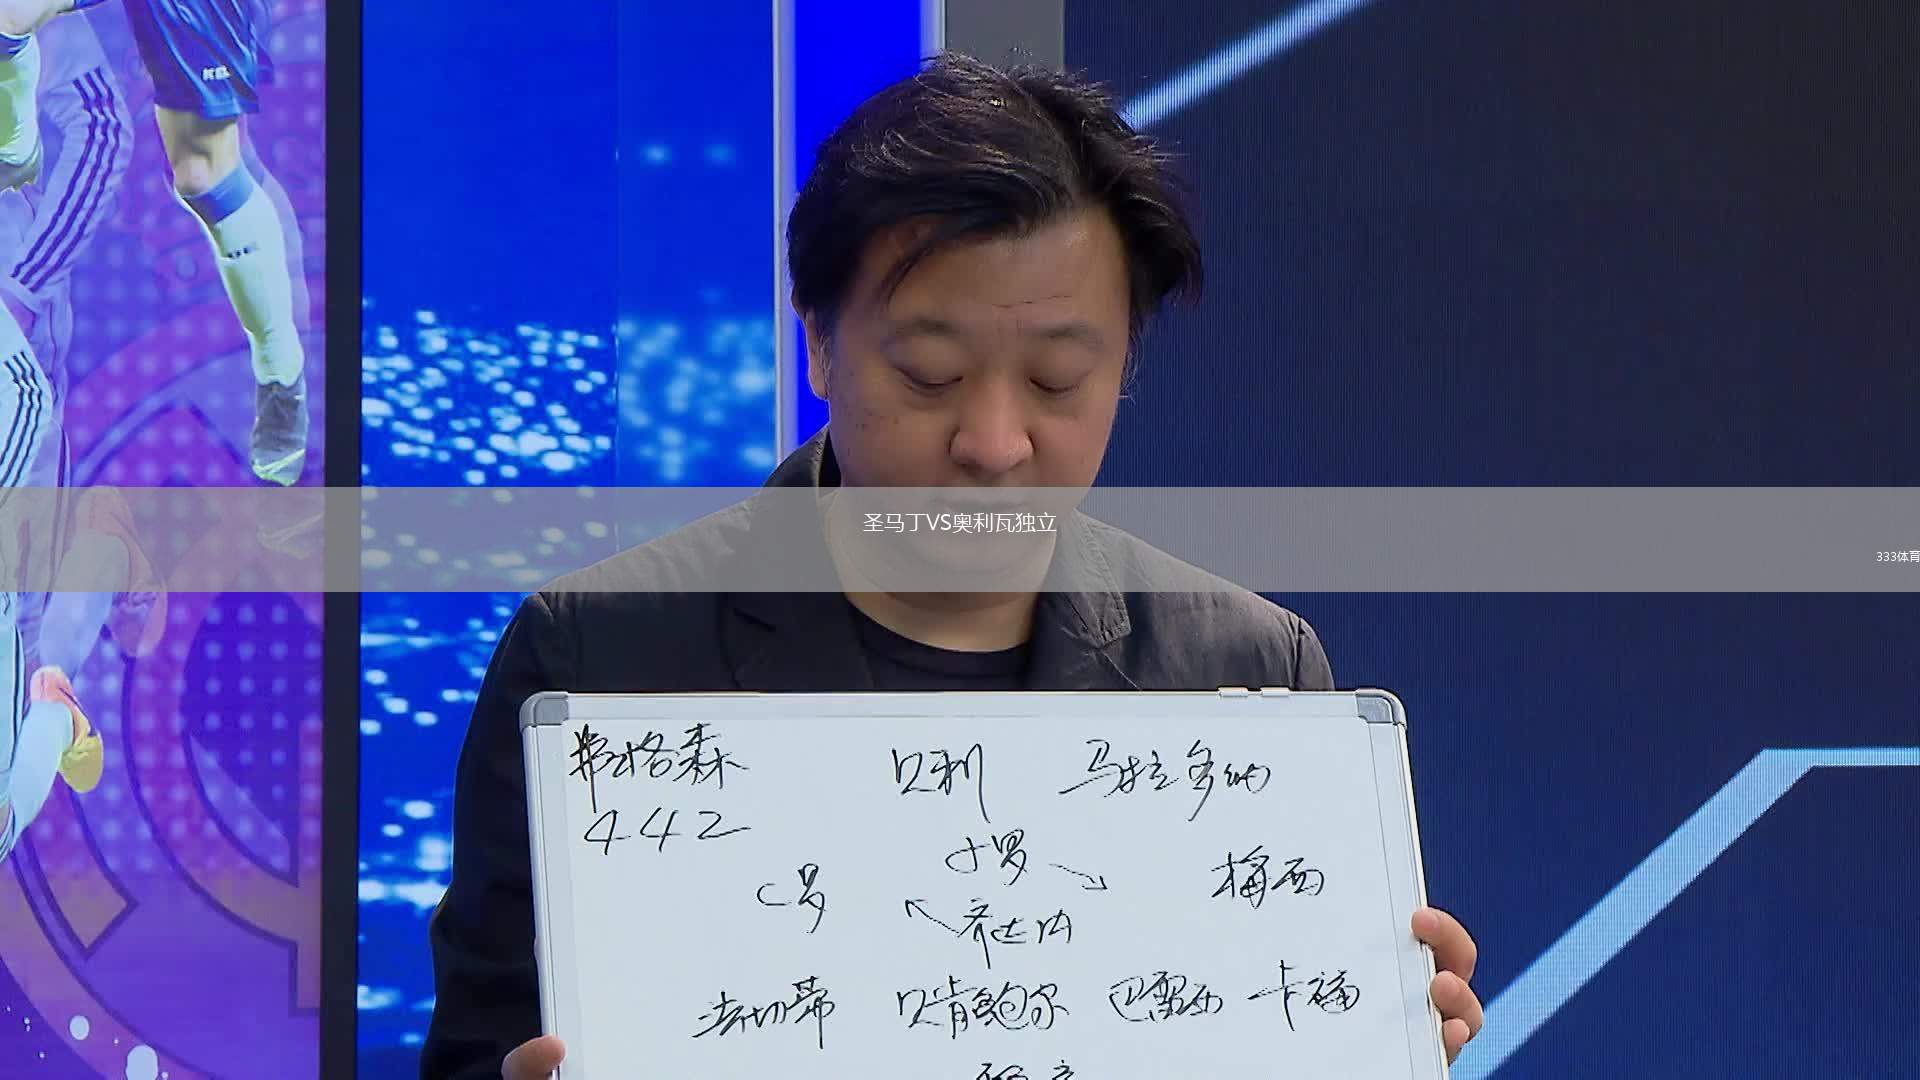 圣马丁VS奥利瓦独立
333体育
弗格森 贝利 马拉多纳
442
小罗
C罗 梅西
齐达内
法切蒂 贝肯鲍尔 巴雷西 卡福